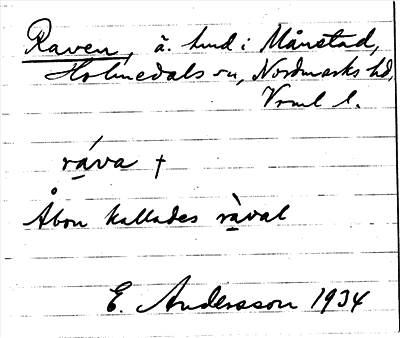 Raven, ä. hmd i Månstad,
Holmedals sn, Nordmarks hd,
Vrml l.
råva †
Åbon kallades råval
E. Andersson 1934